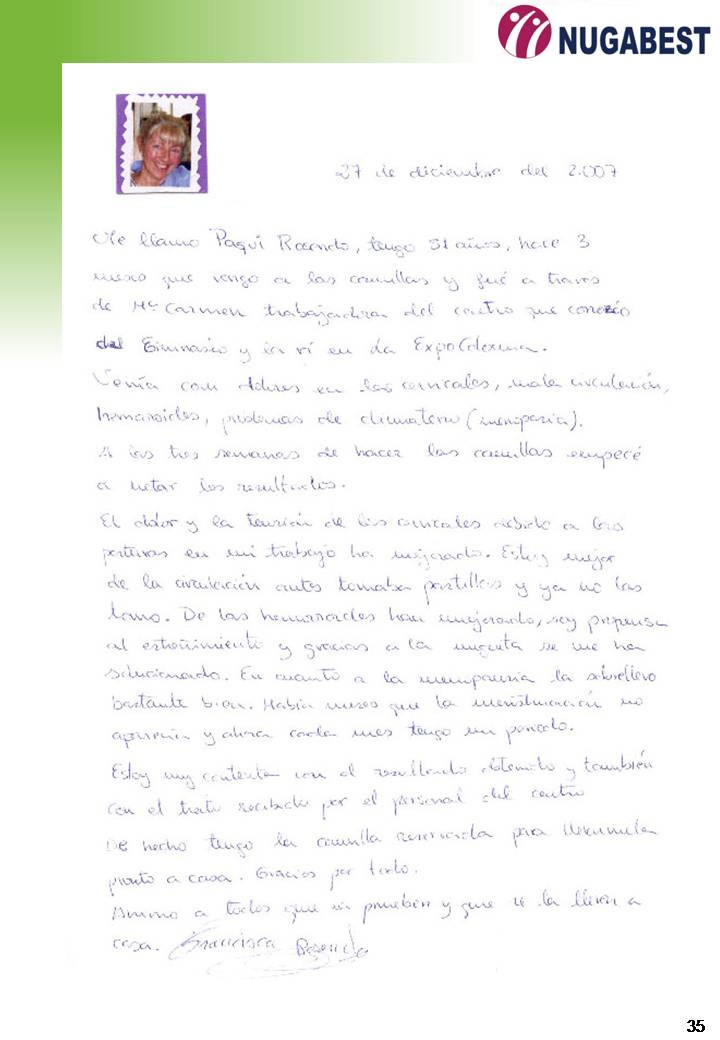 NUGABEST
27 de diciembre del 2.007
Me llamo Paqui Rosendo, tengo 51 años, hace 3
meses que vengo a las camillas y fué a través
de Mª Carmen trabajadora del centro que conozco
del Gimnasio y la ví en la Expocoloma.
Venía con dolores en las cervicales, mala circulación,
hemorroides, problemas de climaterio (menopausia).
A las tres semanas de hacer las camillas empecé
a notar los resultados.
El dolor y la tensión de las cervicales debido a las
posturas en mi trabajo ha mejorado. Estoy mejor
de la circulación antes tomaba pastillas y ya no las
tomo. De las hemorroides han mejorado, soy propensa
al estreñimiento y gracias a la se me ha
solucionado. En cuanto a la menopausia la sobrellevo
bastante bien. Había meses que la menstruación no
aparecía y ahora cada mes tengo un periodo.
Estoy muy contenta con el resultado obtenido y también
con el trato recibido por el personal del centro
De hecho tengo la camilla reservada para
pronto a casa. Gracias por todo.
Animo a todos que la prueben y que se la lleven a
casa. Francisca Rosendo
35